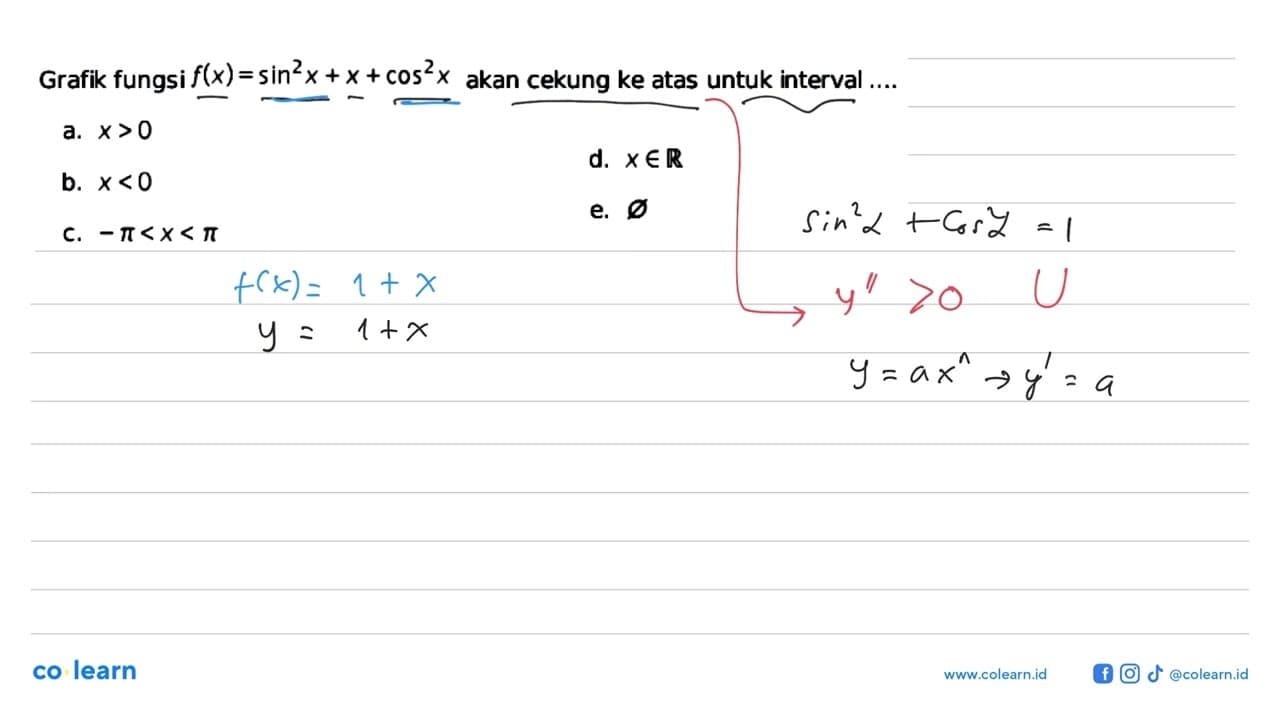 Grafik fungsi f(x) = sin²x + x + cos²x akan cekung ke atas untuk interval ....
a. x > 0
b. x < 0
c. −π < x < π
d. x ∈ ℝ
e. Ø
sin²α + cos²α = 1
f(x) = 1 + x
y = 1 + x
y'' > 0 U
y = axⁿ → y' = a
co·learn
www.colearn.id
@colearn.id